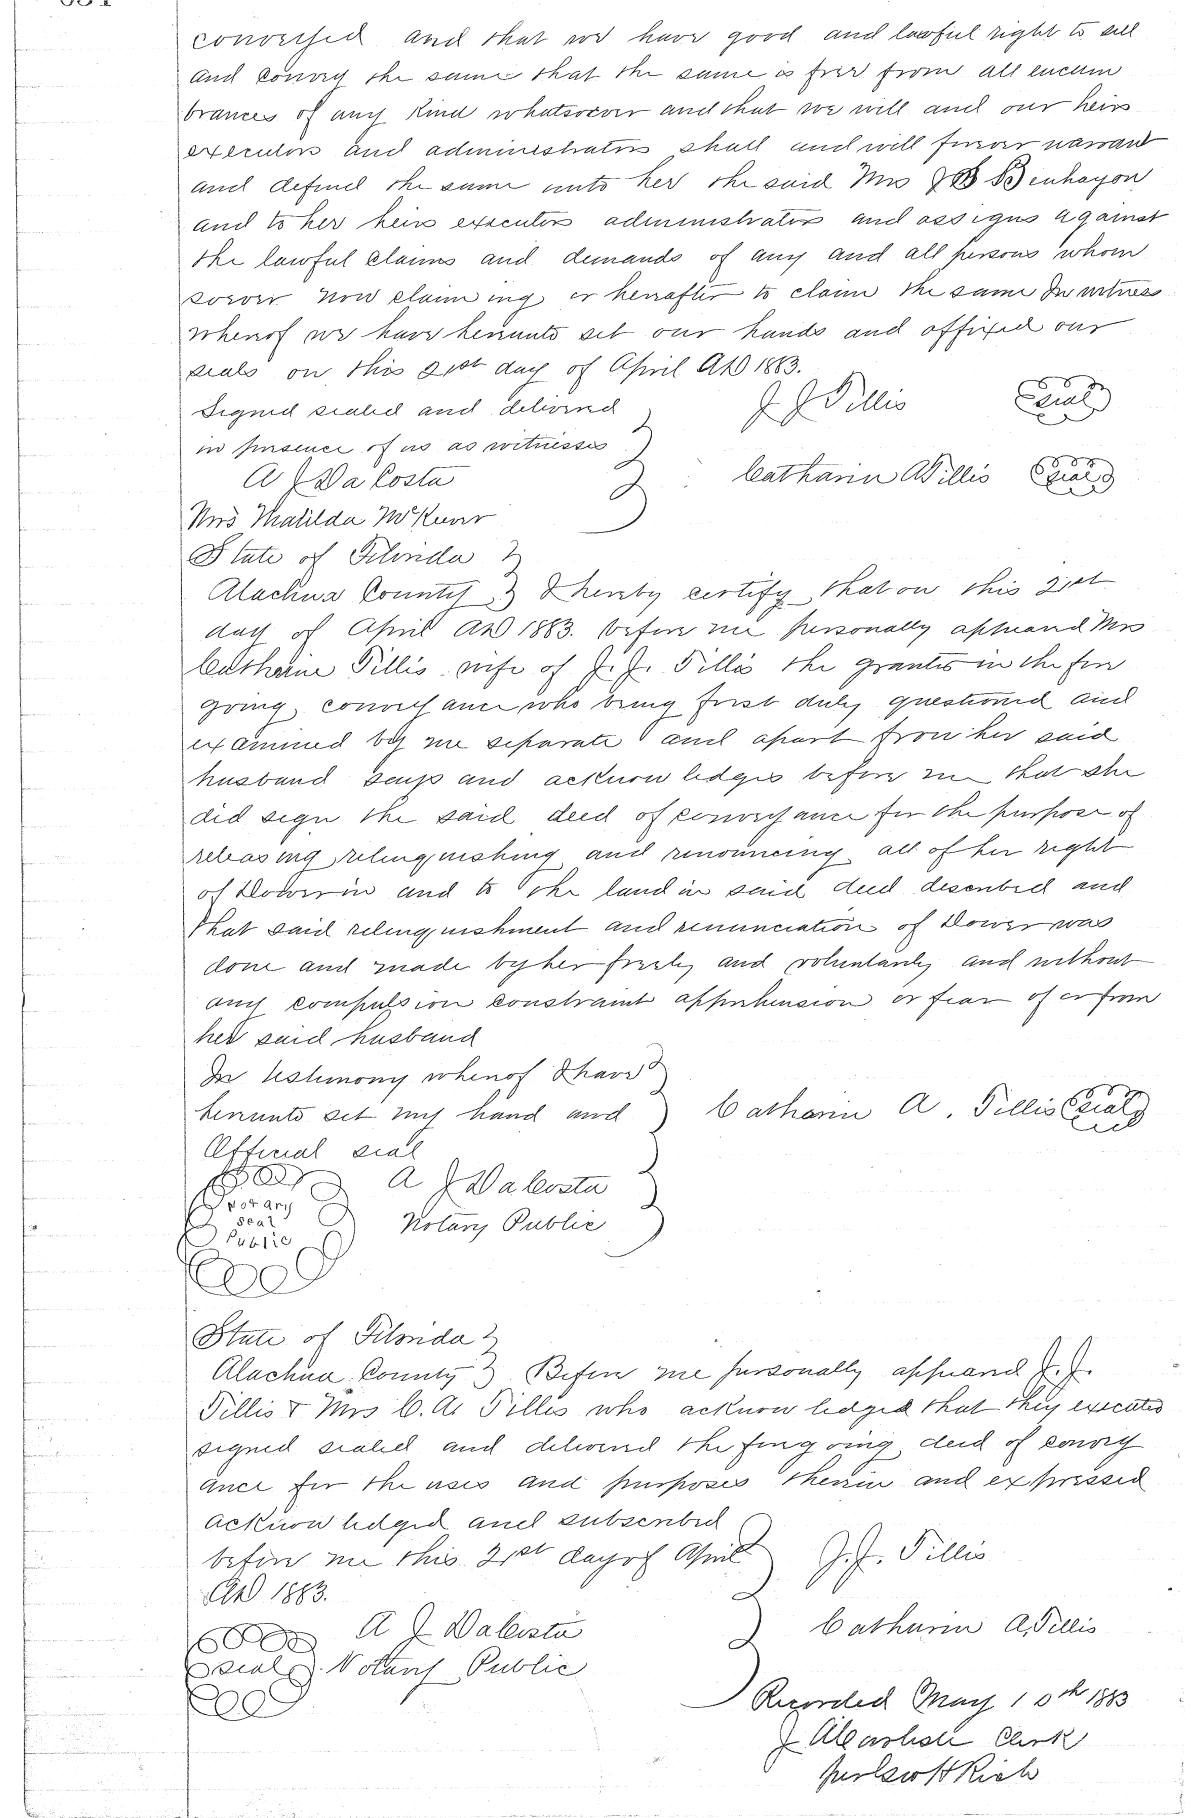 conveyed and that we have good and lawful right to sell
and convey the same that the same is free from all encum
brances of any kind whatsoever and that we will and our heirs
executors and administrators shall and will forever warrant
and defend the same unto her the said Mrs J B Benhayon
and to her heirs executors administrators and assigns against
the lawful claims and demands of any and all persons whom
soever now claiming or hereafter to claim the same In witness
whereof we have hereunto set our hands and affixed our
seals on this 21st day of April AD 1883.
Signed sealed and delivered
J J Tillis Seal
in presence of us as witnesses
A J Da Costa
Catharin A Tillis Seal
Mrs Matilda
State of Florida
Alachua County I hereby certify that on this 21st
day of April AD 1883. before me personally appeared Mrs
Catherine Tillis wife of J. J. Tillis the grantes in the fore
going conveyance who being first duly questioned and
examined by me separate and apart from her said
husband says and acknowledges before me that she
did sign the said deed of conveyance for the purpose of
releasing relinquishing and renouncing all of her right
of Dower in and to the land in said deed described and
that said relinquishment and renunciation of Dower was
done and made by her freely and voluntarily and without
any compulsion constraint apprehension or fear of or from
her said husband
In testimony whereof I have
hereunto set my hand and Catharin A. Tillis Seal
Official seal
A J DaCosta
Notary
seal
Public
Notary Public
State of Florida
Alachua County Before me personally appeared J. J.
Tillis & Mrs C. A. Tillis who acknowledged that they executed
signed sealed and delivered the foregoing deed of convey
ance for the uses and purposes therein and expressed
acknowledged and subscribed
before me this 21st day of April J. J. Tillis
AD 1883.
A J DaCosta Catharin A. Tillis
seal Notary Public
Recorded May 10th 1883
J A Carlisle Clerk